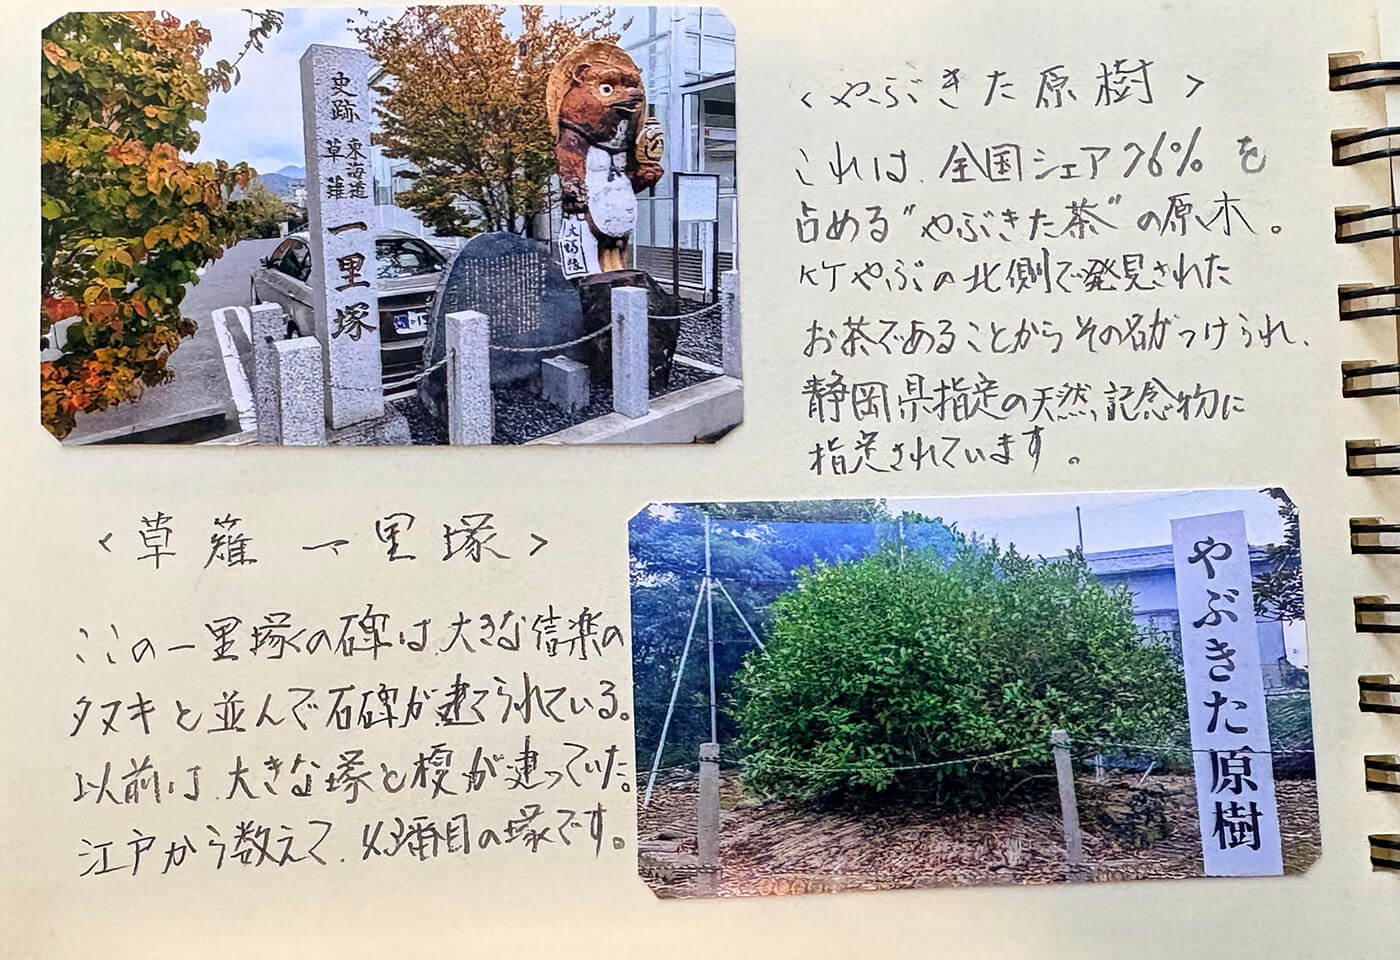 史跡
東海道
草薙
一里塚
大師像
<やぶきた原樹>
これは、全国シェア76%を
占める"やぶきた茶"の原木。
竹やぶの北側で発見された
お茶であることからその名がつけられ、
静岡県指定の天然記念物に
指定されています。
<草薙 一里塚>
ここの一里塚の碑は、大きな信楽の
タヌキと並んで石碑が建てられている。
以前は、大きな塚と榎が建っていた。
江戸から数えて、43番目の塚です。
やぶきた原樹